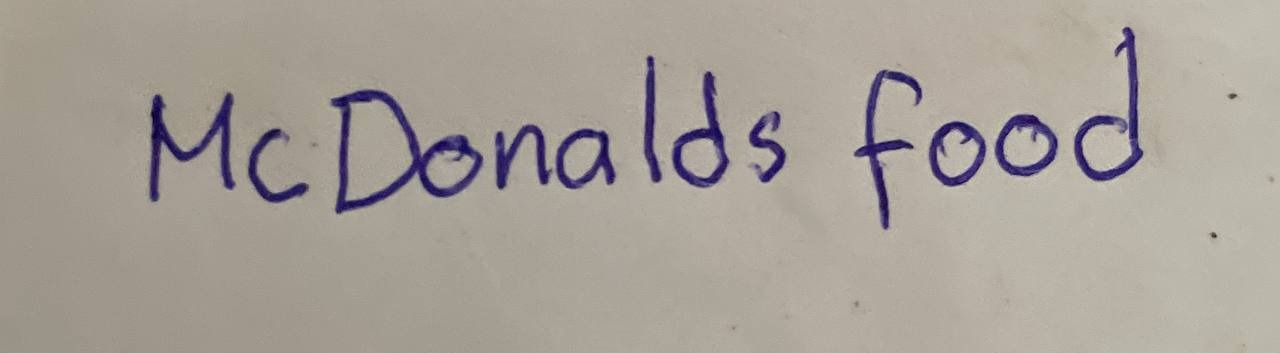 McDonalds food